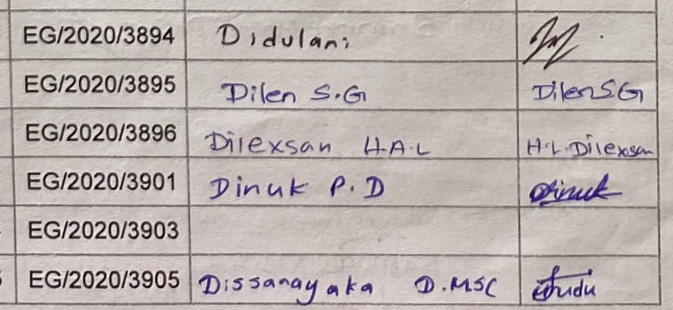 EG/2020/3894 Didulani
EG/2020/3895 Dilen S.G Dilen S.G
EG/2020/3896 Dilexsan H.A.L H.L.Dilexsan
EG/2020/3901 Dinuk P.D Dinuk
EG/2020/3903
EG/2020/3905 Dissanayaka D.MSC